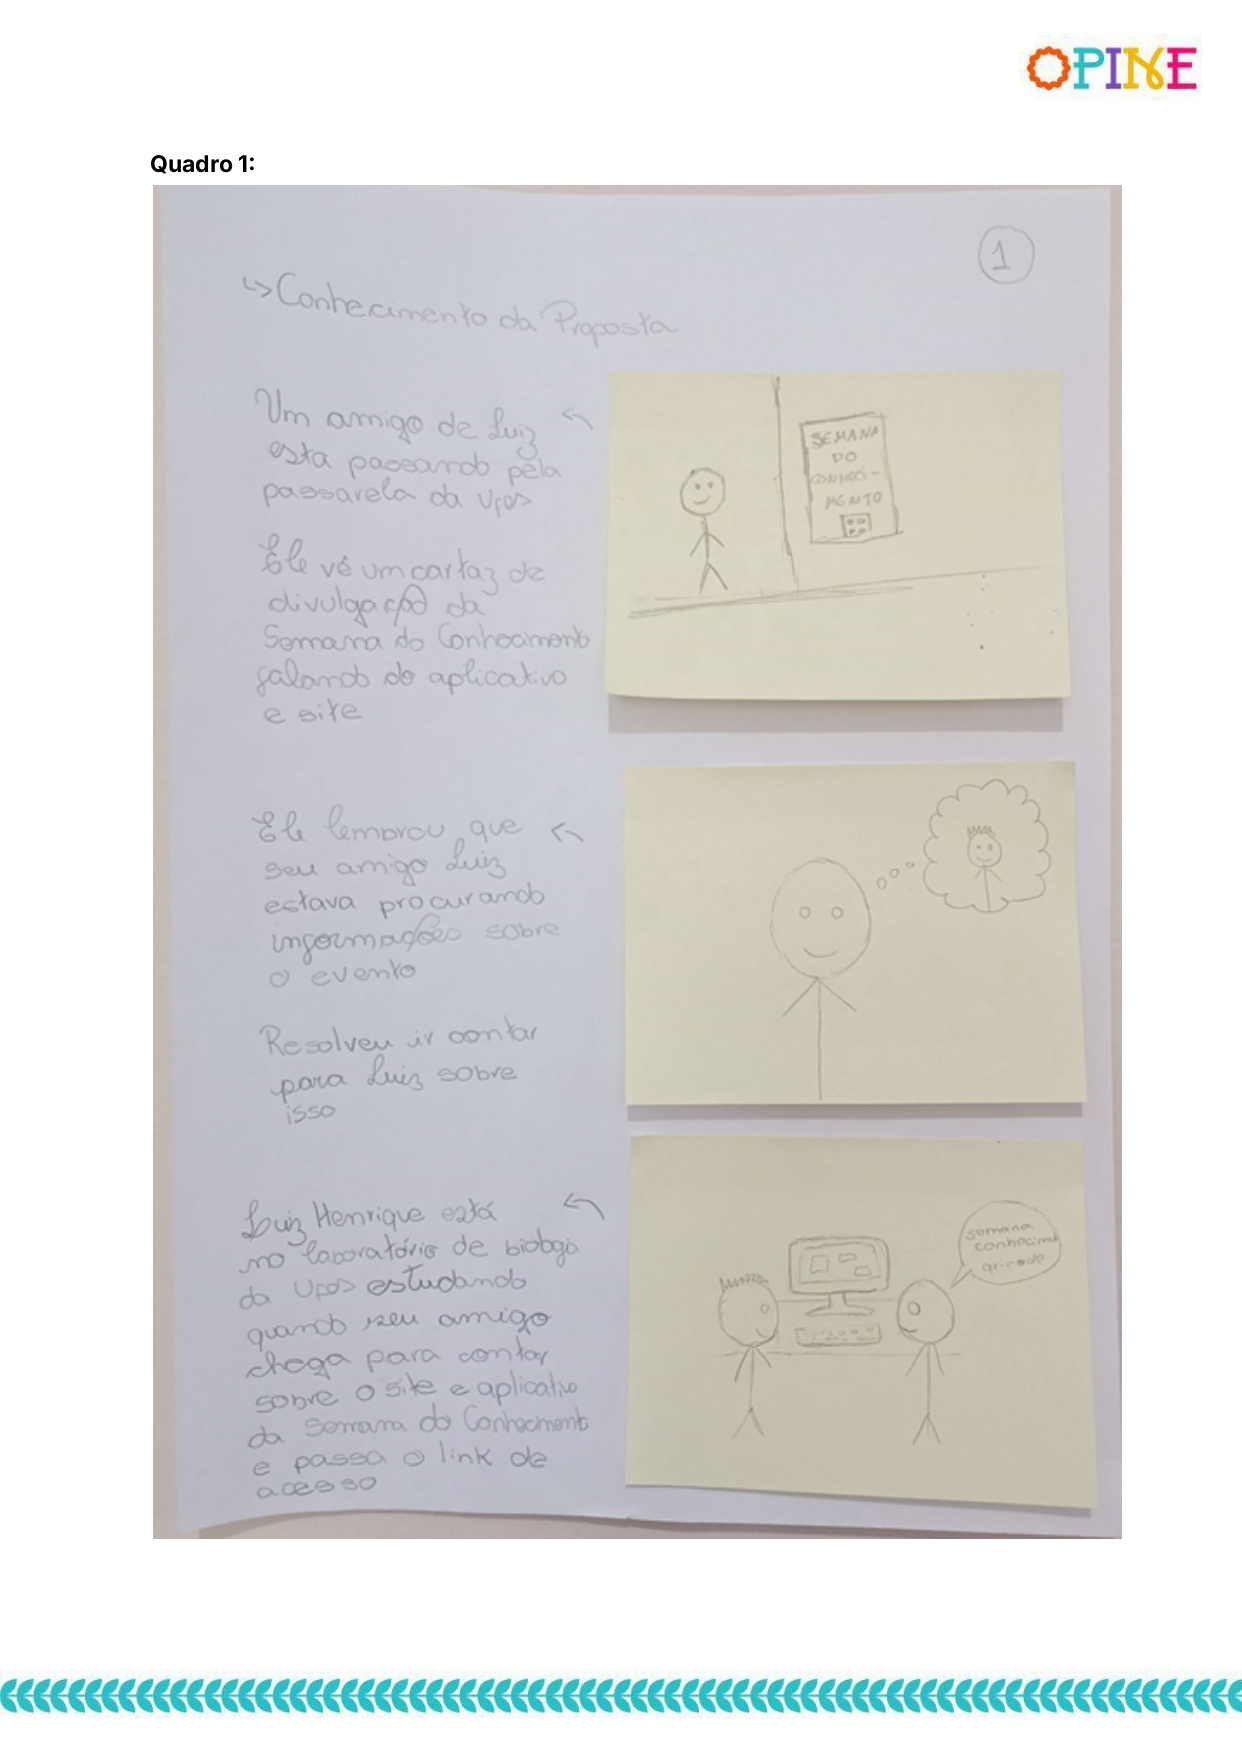 OPINE
Quadro 1:
1
↳ Conhecimento da Proposta
Um amigo de Luiz
esta passando pela
passarela da Ufes
Ele vê um cartaz de
divulgação da
Semana do Conhecimento
falando do aplicativo
e site
SEMANA
DO
CONHECI-
MENTO
Ele lembrou que
seu amigo Luiz
estava procurando
informações sobre
o evento
Resolveu ir contar
para Luiz sobre
isso
Luiz Henrique está
no laboratório de biologia
da Ufes estudando
quando seu amigo
chega para contar
sobre o site e aplicativo
da Semana do Conhecimento
e passa o link de
acesso
semana
conhecime
qr-code